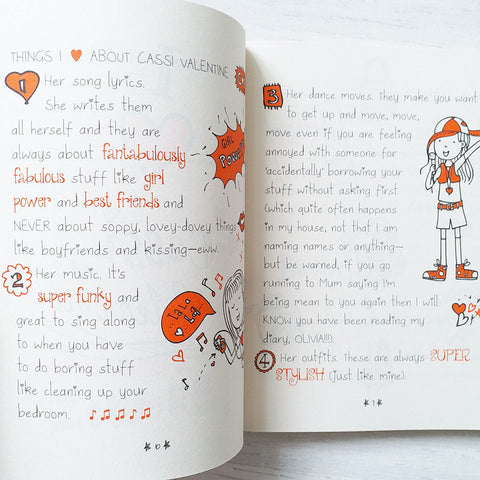 THINGS I ♥ ABOUT CASSI VALENTINE
1 Her song lyrics.
She writes them
all herself and they are
always about fantabulously-
fabulous stuff like girl
power and best friends and
NEVER about soppy, lovey-dovey things
like boyfriends and kissing—eww.
GIRL
POWER!!!
2 Her music. It's
super funky and
great to sing along
to when you have
to do boring stuff
like cleaning up your
bedroom.
La La
La...
3 Her dance moves. They make you want
to get up and move, move,
move even if you are feeling
annoyed with someone for
'accidentally' borrowing your
stuff without asking first
(which quite often happens
in my house, not that I am
naming names or anything—
but be warned, if you go
running to Mum saying I'm
being mean to you again then I will
KNOW you have been reading my
diary, OLIVIA!!!).
4 Her outfits. These are always SUPER
STYLISH (just like mine).
7